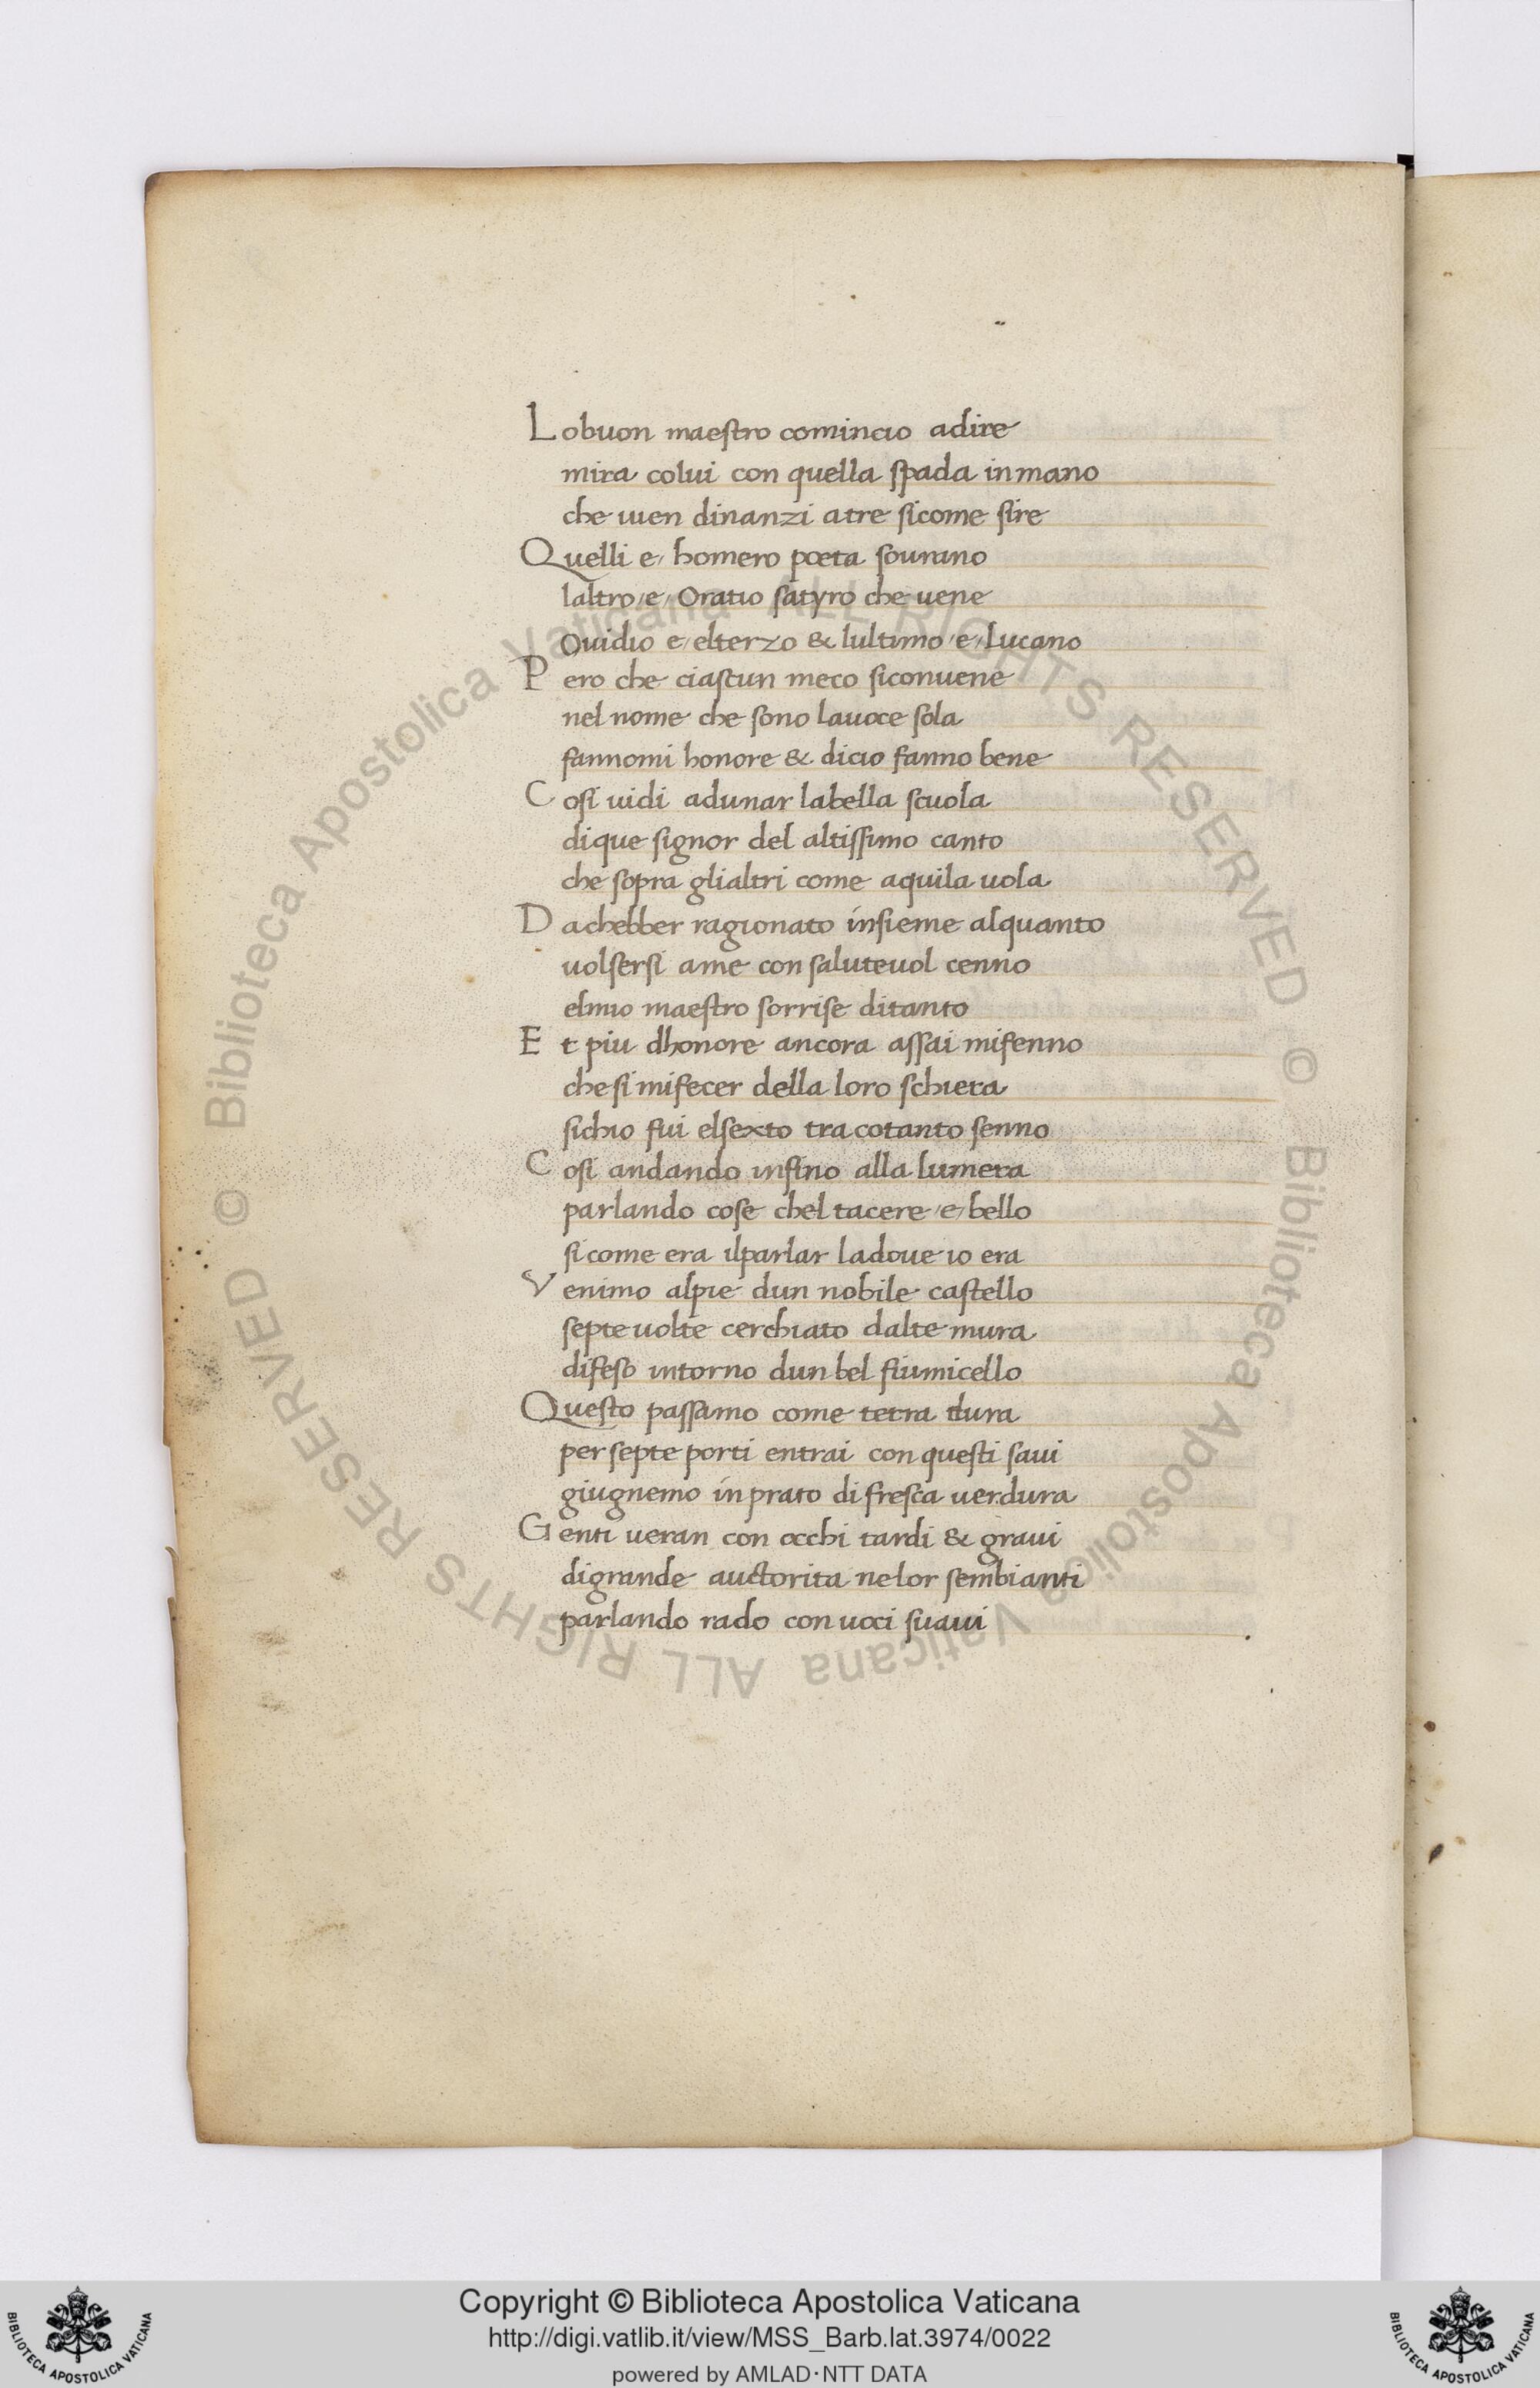 Lobuon maestro comincio adire
mira colui con quella spada inmano
che uien dinanzi atre sicome sire
Quelli e homero poeta sourano
laltro /e/ Oratio satyro che uene
Ouidio e/ elterzo & lultimo /e/ Lucano
Pero che ciascun meco siconuene
nel nome che sono lauoce sola
fannomi honore & dicio fanno bene
Cosi uidi adunar labella scuola
dique signor del altissimo canto
che sopra glialtri come aquila uola
Dachebber ragionato insieme alquanto
uolsersi ame con saluteuol cenno
elmio maestro sorrise ditanto
Et piu dhonore ancora assai mifenno
chesi mifecer della loro schiera
sichio fui elsexto tra cotanto senno
Cosi andando infino alla lumera
parlando cose chel tacere /e/ bello
sicome era ilparlar ladoue io era
Venimo alpie dun nobile castello
septe uolte cerchiato dalte mura
difeso intorno dun bel fiumicello
Questo passamo come terra dura
per septe porti entrai con questi saui
giugnemo in prato di fresca uerdura
Genti ueran con occhi tardi & graui
digrande auctorita nelor sembianti
parlando rado con uoci suaui
© Biblioteca Apostolica Vaticana ALL RIGHTS RESERVED © Biblioteca Apostolica Vaticana ALL RIGHTS RESERVED
Copyright © Biblioteca Apostolica Vaticana
http://digi.vatlib.it/view/MSS_Barb.lat.3974/0022
powered by AMLAD·NTT DATA
BIBLIOTECA APOSTOLICA VATICANA
BIBLIOTECA APOSTOLICA VATICANA